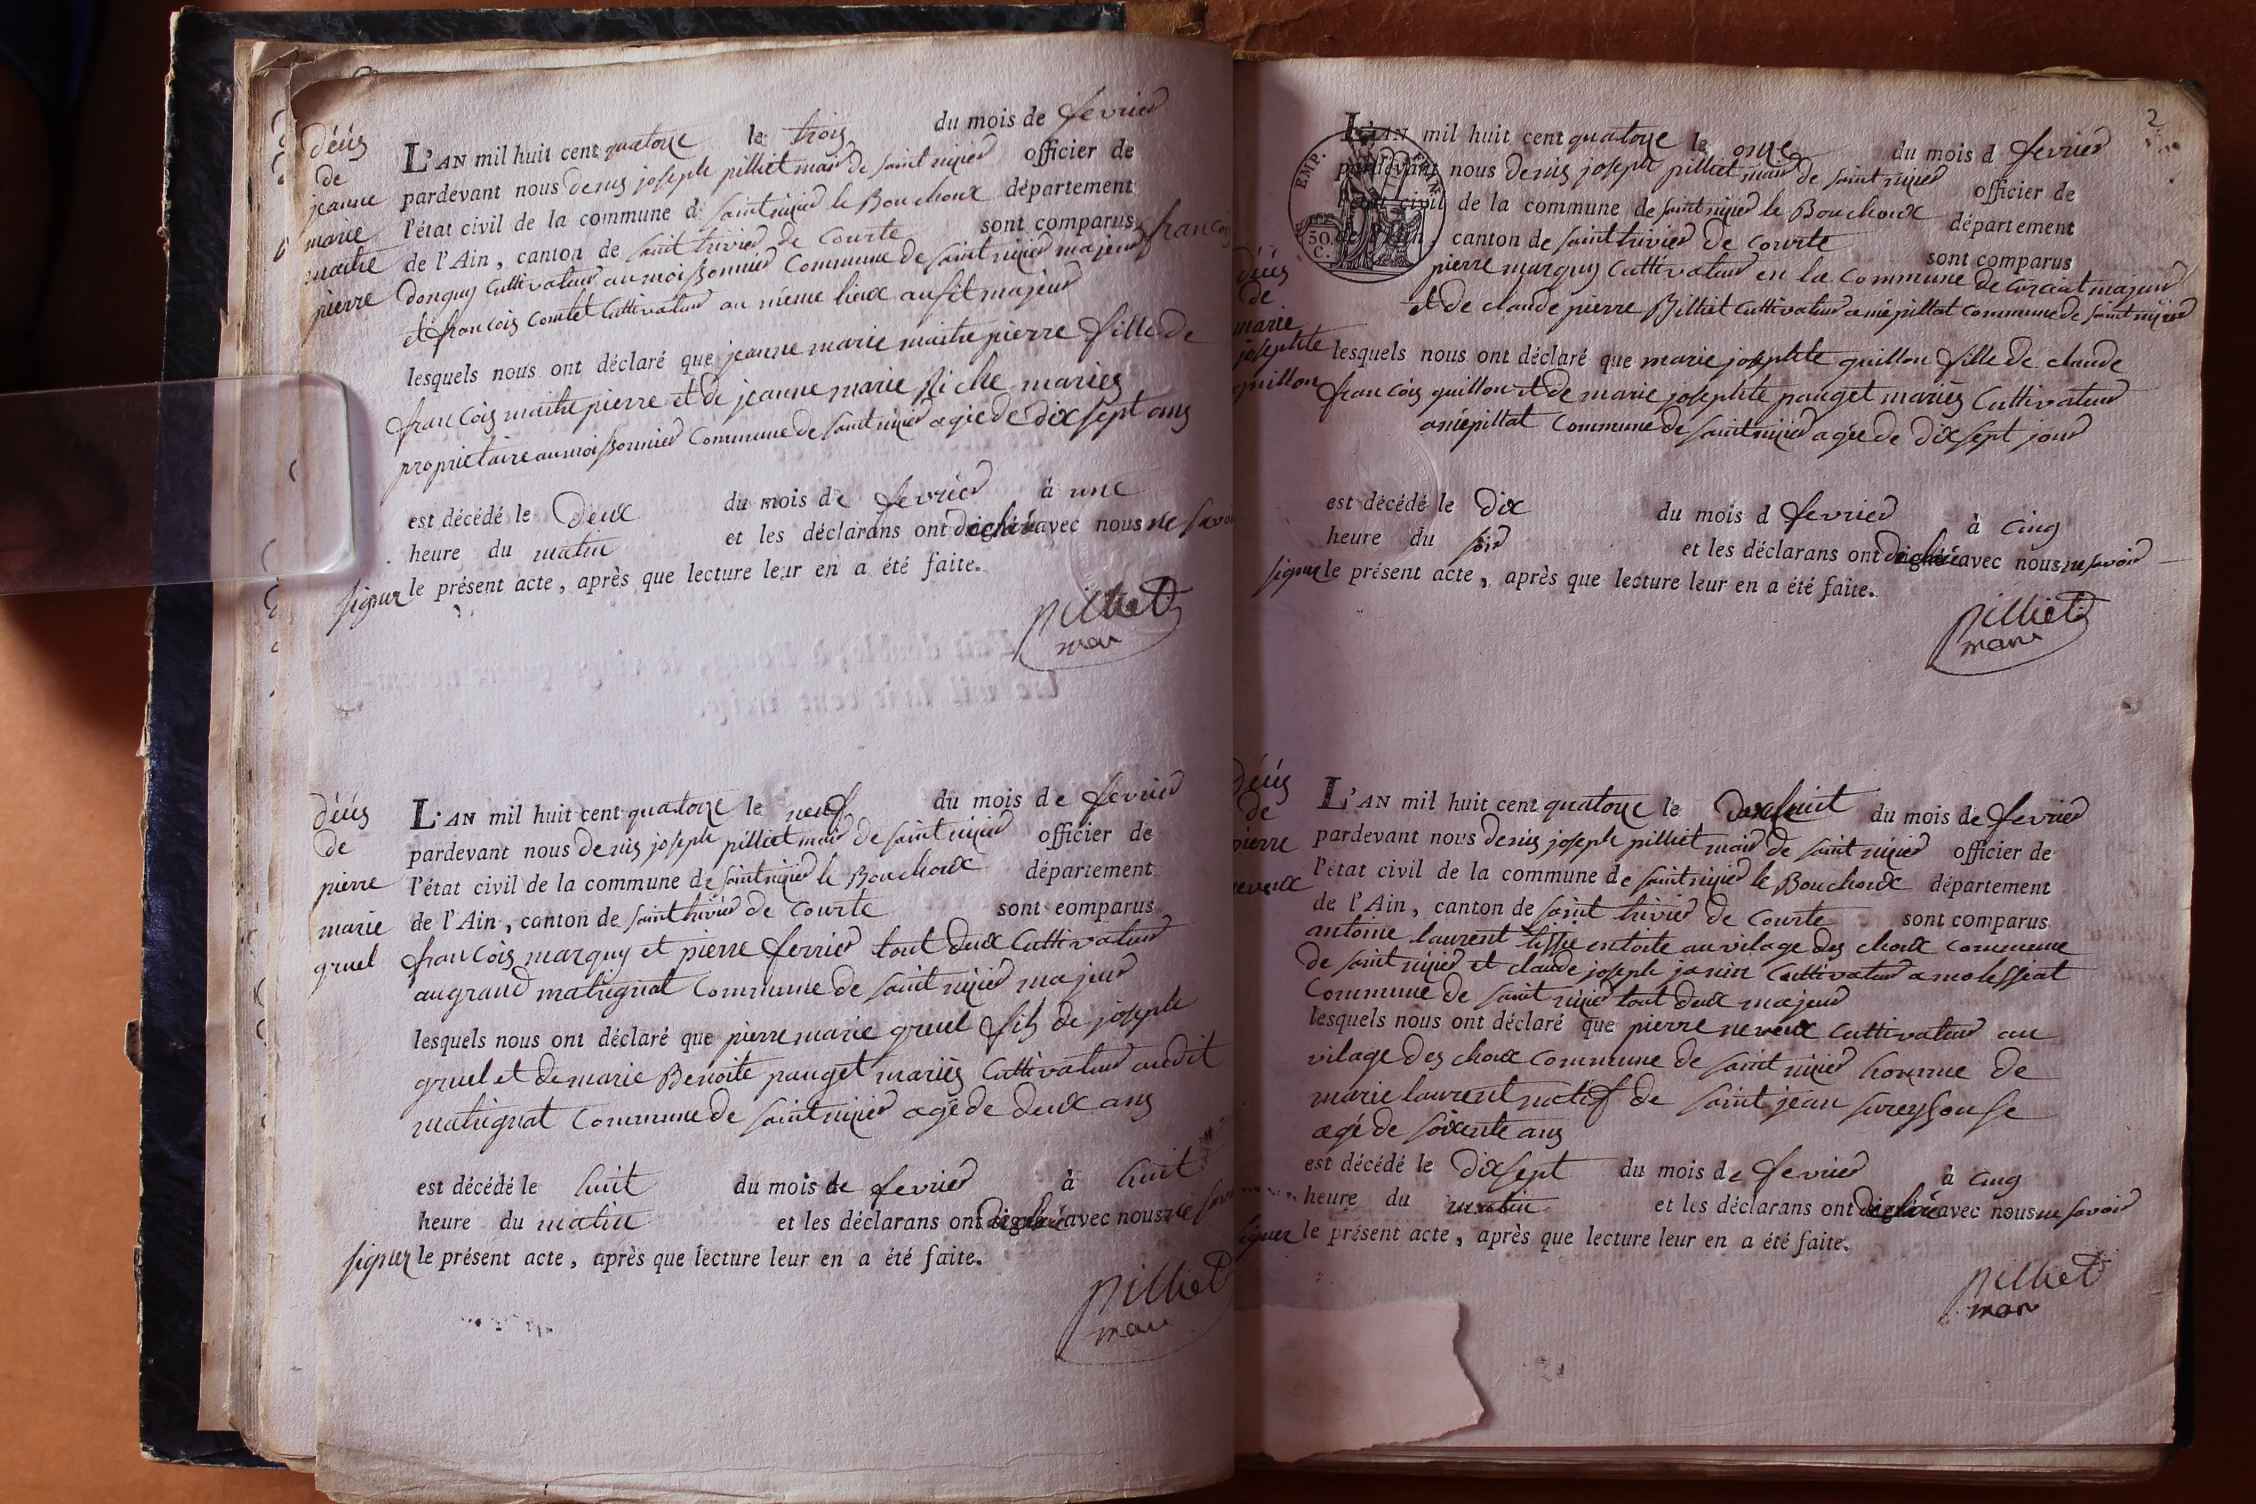 décés
de
jeanne
marie
maitre
pierre
L'AN mil huit cent quatorze le trois du mois de fevrier
pardevant nous denis joseph pilliet maire de saint nizier officier de
l'état civil de la commune d saint nizier le Bouchoux département
de l'Ain, canton de saint trivier de Courte sont comparus francois
donguy Cultivateur au moissonnier Commune de saint nizier majeur
et francois Comtet Cultivateur au meme lieux ausit majeur
lesquels nous ont déclaré que jeanne marie maitre pierre fille de
francois maitre pierre et de jeanne marie Piche mariés
proprietaire au moissonnier Commune de saint nizier agée de dix sept ans
est décédé le Deux du mois de fevrier à une
heure du matin et les déclarans ont avec nous ne savoir
signer le présent acte, après que lecture leur en a été faite.
pilliet
maire
décés
de
pierre
marie
gruel
L'AN mil huit cent quatorze le neuf du mois de fevrier
pardevant nous denis joseph pilliet maire de saint nizier officier de
l'état civil de la commune de saint nizier le Bouchoux département
de l'Ain, canton de saint trivier de Courte sont comparus
francois marguy et pierre ferrier tout deux Cultivateur
au grand matrignat Commune de saint nizier majeur
lesquels nous ont déclaré que pierre marie gruel fils de joseph
gruel et de marie Benoite pauget mariés Cultivateur audit
matrignat Commune de saint nizier agé de deux ans
est décédé le huit du mois de fevrier à huit
heure du matin et les déclarans ont avec nous ne savoir
signer le présent acte, après que lecture leur en a été faite.
pilliet
maire
2
EMP. FRAN.
50.
C.
décés
de
marie
josephte
guillon
L'AN mil huit cent quatorze le onze du mois d fevrier
pardevant nous denis joseph pilliet maire de saint nizier officier de
l'état civil de la commune de saint nizier le Bouchoux département
de l'Ain, canton de saint trivier de Courte sont comparus
pierre marguy Cultivateur en la Commune de Curciat majeur
et de claude pierre Billiet Cultivateur a mépillat Commune de saint nizier
lesquels nous ont déclaré que marie josephte guillon fille de claude
francois guillon et de marie josephte pauget mariés Cultivateur
a mépillat Commune de saint nizier agée de dix sept jour
est décédé le Dix du mois d fevrier à Cinq
heure du soir et les déclarans ont avec nous ne savoir
signer le présent acte, après que lecture leur en a été faite.
pilliet
maire
décés
de
pierre
neveux
L'AN mil huit cent quatorze le Dixhuit du mois de fevrier
pardevant nous denis joseph pilliet maire de saint nizier officier de
l'état civil de la commune de saint nizier le Bouchoux département
de l'Ain, canton de saint trivier de Courte sont comparus
antoine laurent tissie en toile au vilage des choux commune
de saint nizier et claude joseph janin Cultivateur a molessiat
Commune de saint nizier tout deux majeur
lesquels nous ont déclaré que pierre neveux cultivateur au
vilage des choux commune de saint nizier homme de
marie laurent natif de saint jean sureyssouse
agé de soixente ans
est décédé le dixsept du mois de fevrier à Cinq
heure du matin et les déclarans ont avec nous ne savoir
signer le présent acte, après que lecture leur en a été faite.
pilliet
maire